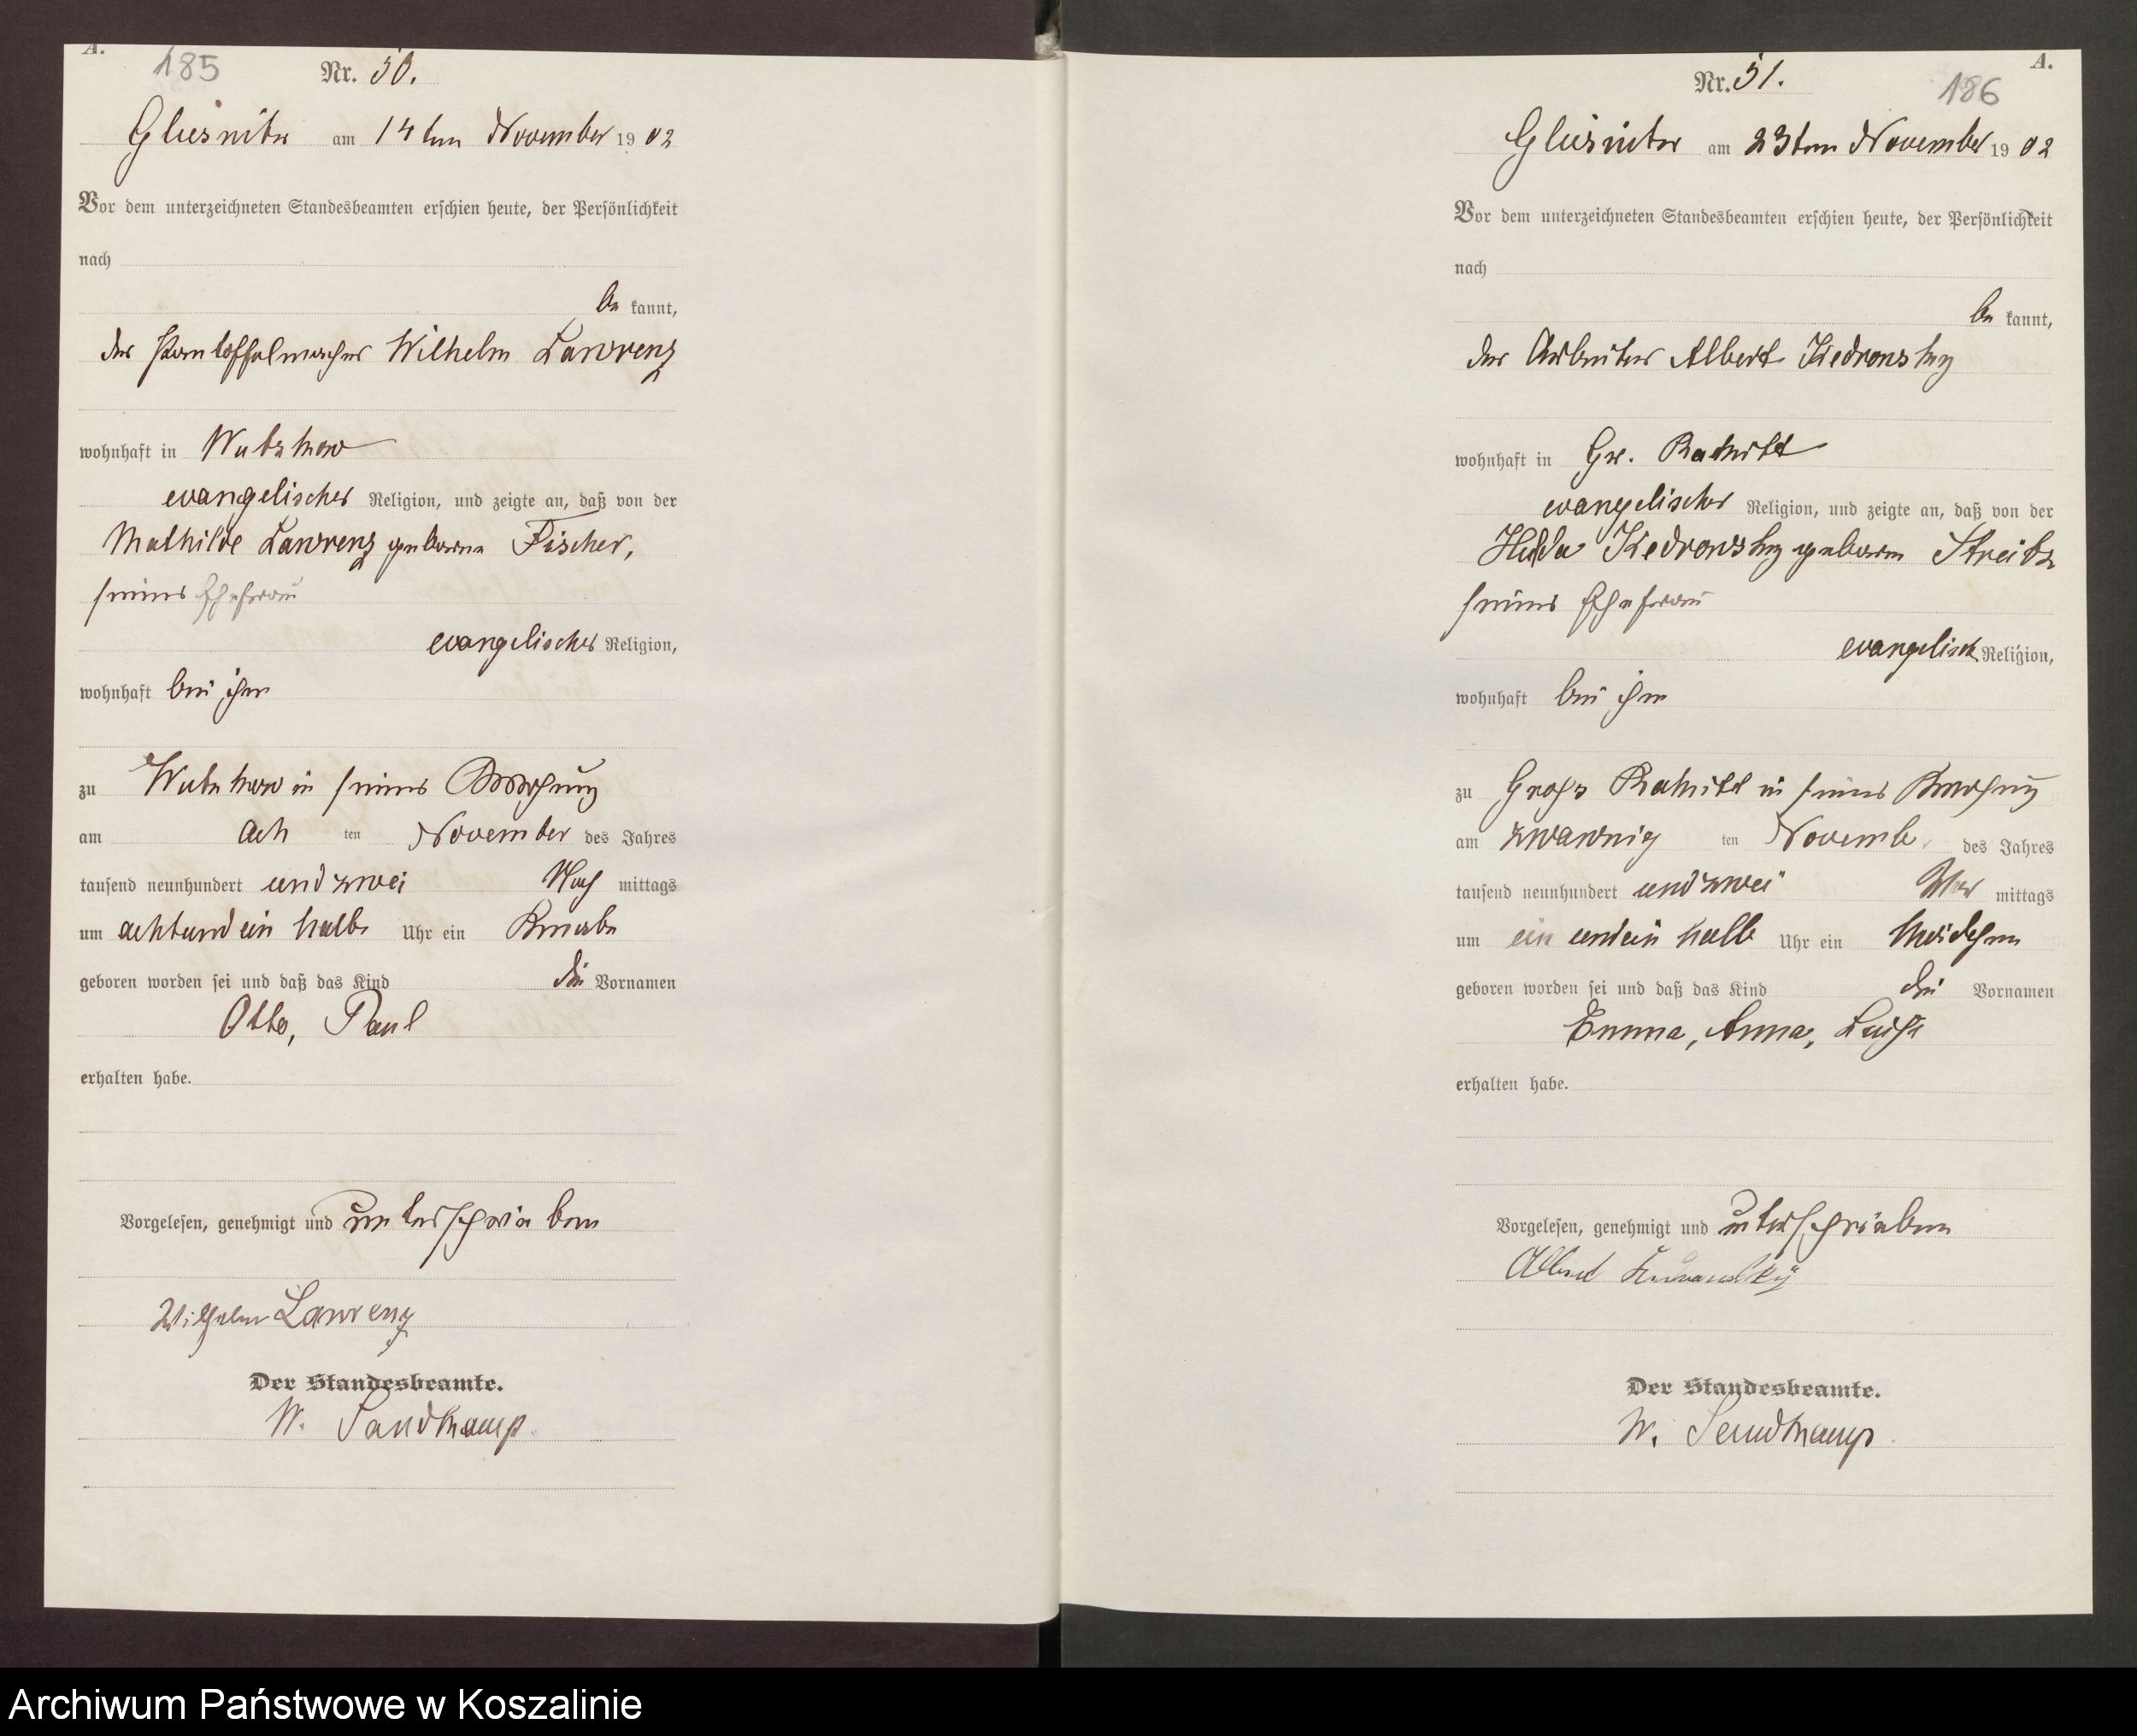 A.
185
Nr. 50.
Glusnitz am 14ten November 1902
Vor dem unterzeichneten Standesbeamten erschien heute, der Persönlichkeit
nach
be kannt,
der Pantoffelmacher Wilhelm Lawrenz
wohnhaft in Wutzkow
evangelischer Religion, und zeigte an, daß von der
Mathilde Lawrenz geborene Fischer,
seiner Ehefrau
evangelischer Religion,
wohnhaft bei ihm
zu Wutzkow in seiner Wohnung
am ach ten November des Jahres
tausend neunhundert und zwei Nach mittags
um acht und ein halb Uhr ein Knabe
geboren worden sei und daß das Kind die Vornamen
Otto, Paul
erhalten habe.
Vorgelesen, genehmigt und unterschrieben
Wilhelm Lawrenz
Der Standesbeamte.
W. Sandkamp
A.
Nr. 51.
186
Glusnitz am 23ten November 1902
Vor dem unterzeichneten Standesbeamten erschien heute, der Persönlichkeit
nach
be kannt,
der Arbeiter Albert Kiedrowsky
wohnhaft in Gr. Rakitt
evangelischer Religion, und zeigte an, daß von der
Hulda Kiedrowsky geboren Streitz
seiner Ehefrau
evangelisch Religion,
wohnhaft bei ihm
zu Groß Rakitt in seiner Wohnung
am zwanzig ten Novemb. des Jahres
tausend neunhundert und zwei Vor mittags
um ein und ein halb Uhr ein Mädchen
geboren worden sei und daß das Kind die Vornamen
Emma, Anna, Luise
erhalten habe.
Vorgelesen, genehmigt und unterschrieben
Albert
Der Standesbeamte.
W. Sandkamp
Archiwum Państwowe w Koszalinie